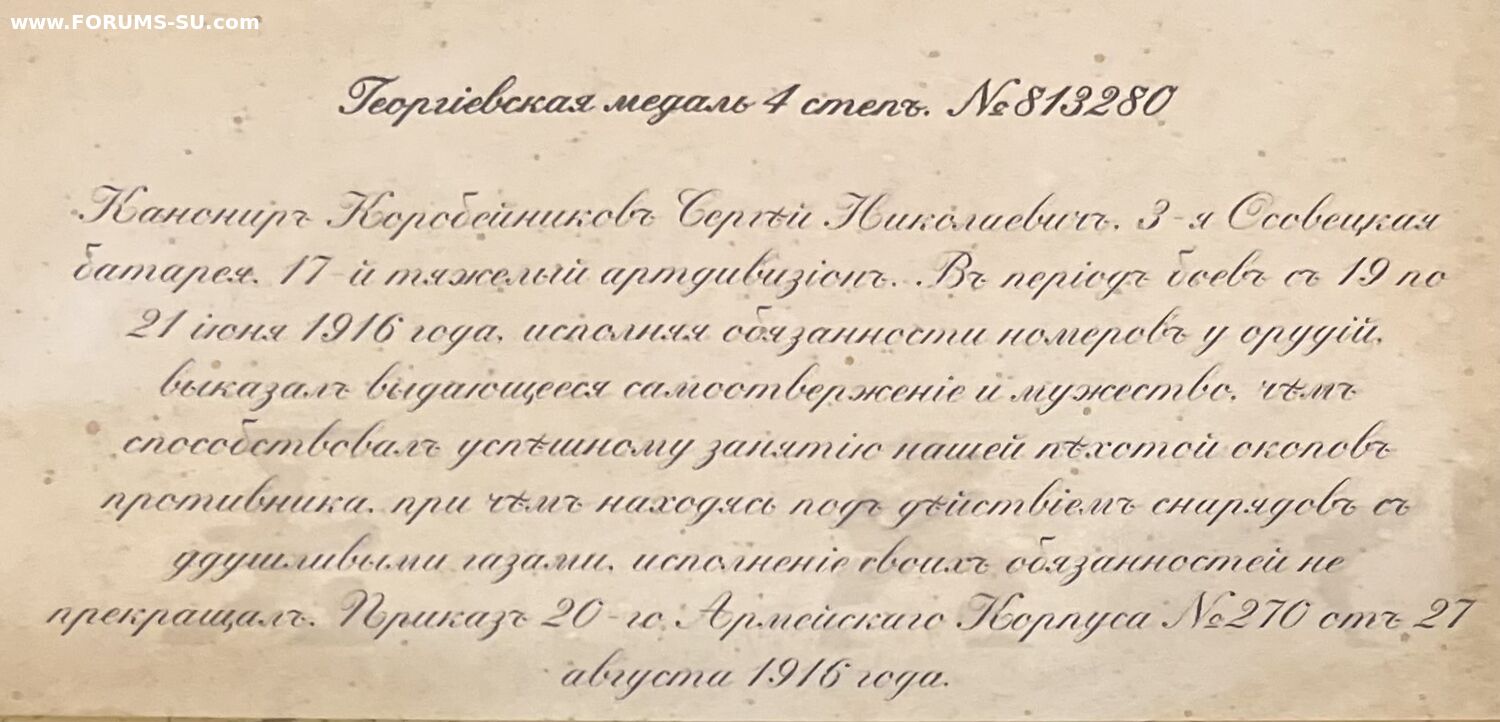 www.FORUMS-SU.com
Георгіевская медаль 4 степъ. №813280
Канониръ Коробейниковъ Сергѣй Николаевичъ, 3-я Осовецкая
батарея, 17-й тяжелый артдивизіонъ. Въ періодъ боевъ съ 19 по
21 іюня 1916 года, исполняя обязанности номеровъ у орудій,
выказалъ выдающееся самоотверженіе и мужество, чѣмъ
способствовалъ успѣшному занятію нашей пѣхотой окоповъ
противника, при чѣмъ находясь подъ дѣйствіемъ снарядовъ съ
удушливыми газами, исполненіе своихъ обязанностей не
прекращалъ. Приказъ 20-го Армейскаго Корпуса №270 отъ 27
августа 1916 года.